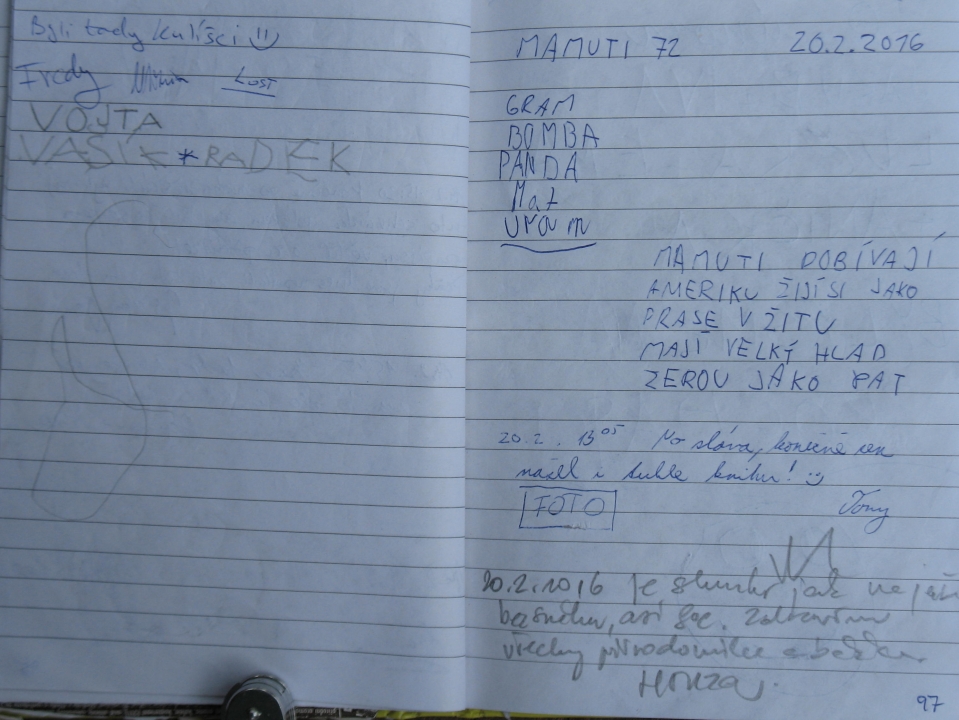 Byli tady kulíšci
Fredy Lost
VOJTA
VAŠÍK * RADEK
MAMUTI 72 20.2.2016
GRAM
BOMBA
PANDA
Mat
MAMUTI DOBÍVAJÍ
AMERIKU ŽIJÍ SI JAKO
PRASE V ŽITU
MAJÍ VELKÝ HLAD
ŽEROU JAKO
20.2. 13 05 No sláva, konečně sem
našel i tuhle knihu!
FOTO Tony
20.2.2016 je jak na
básničku, asi 8°C. Zdravím
všechny přírodomilce
Honza.
97